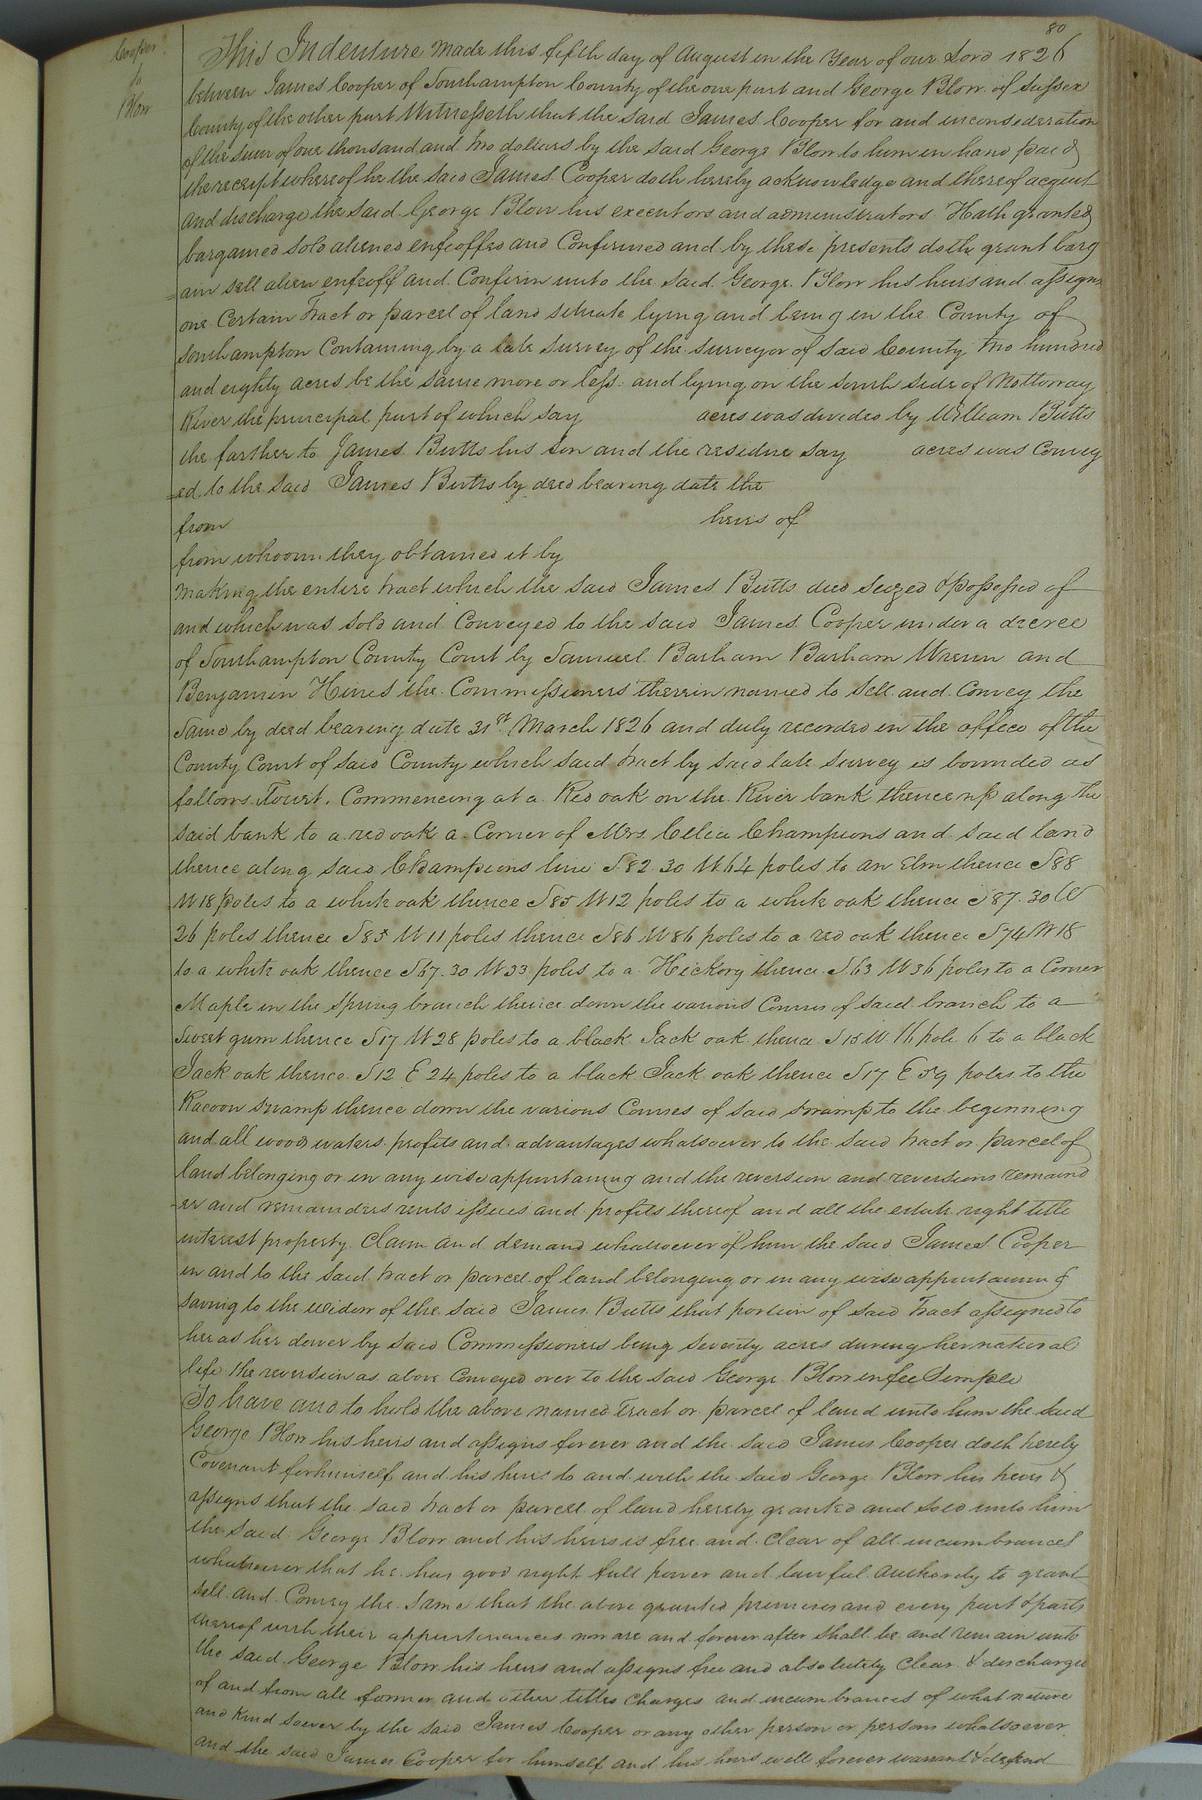 80
Cooper
to
Blow
This Indenture made this fifth day of August in the Year of our Lord 1826
between James Cooper of Southampton County of the one part and George Blow of Sussex
County of the other part Witnesseth that the said James Cooper for and inconsideration
of the sum of one thousand and two dollars by the said George Blow to him in hand paid
the receipt whereof he the said James Cooper doth hereby acknowledge and thereof acquit
and discharge the said George Blow his executors and administrators Hath granted
bargained sold aliened enfeoffed and Confirmed and by these presents doth grant barg
=ain sell alien enfeoff and Confirm unto the said George Blow his heirs and assigns
one Certain Tract or parcel of land situate lying and being in the County of
Southampton Containing by a late survey of the surveyor of said County two hundred
and eighty acres be the same more or less and lying on the south side of Nottoway
River the principal part of which say acres was divided by William Butts
the farther to James Butts his son and the residue say acres was Convey
=ed to the said James Butts by deed bearing date the
from heirs of
from whoom they obtained it by
making the entire tract which the said James Butts died seized & possessed of
and which was sold and Conveyed to the said James Cooper under a decree
of Southampton County Court by Samuel Barham Barham Wrenn and
Benjamin Hines the Commissioners therein named to sell and Convey the
same by deed bearing date 31st March 1826 and duly recorded in the office of the
County Court of said County which said tract by said late survey is bounded as
follows Towit. Commencing at a Red oak on the River bank thence up along the
said bank to a red oak a Corner of Mrs Celia Champions and said land
thence along said Champions line S82 30 W64 poles to an Elm thence S88
W18 poles to a white oak thence S85 W12 poles to a white oak thence S87.30 W
26 poles thence S85 W11 poles thence S86 W86 poles to a red oak thence S74 W18
to a white oak thence S67.30 W33 poles to a Hickory thence S63 W36 poles to a Corner
Maple in the Spring branch thence down the various Courses of said branch to a
Sweet gum thence S17 W28 poles to a black Jack oak thence S15 W 16 pole 6 to a black
Jack oak thence S12 E24 poles to a black Jack oak thence S17 E59 poles to the
Racoon swamp thence down the various Courses of said swamp to the beginning
and all woods waters profits and advantages whatsoever to the said tract or parcel of
land belonging or in any wise appurtaining and the reversion and reversions remaind
-er and remainders rents issues and profits thereof and all the estate right title
interest property Claim and demand whatsoever of him the said James Cooper
in and to the said tract or parcel of land belonging or in any wise appurtaining
saving to the widow of the said James Butts that portion of said Tract assigned to
her as her dower by said Commissioners being seventy acres during her natural
life the reversion as above Conveyed over to the said George Blow in fee Simple
To have and to hold the above named Tract or parcel of land unto him the said
George Blow his heirs and assigns forever and the said James Cooper doth hereby
Covenant for himself and his heirs to and with the said George Blow his heirs &
assigns that the said tract or parcel of land hereby granted and sold unto him
the said George Blow and his heirs is free and clear of all incumbrances
whatsoever that he has good right full power and lawful authority to grant
sell and Convey the same that the above granted premises and every part & parts
thereof with their appurtenances now are and forever after shall be and remain unto
the said George Blow his heirs and assigns free and absolutely Clear & discharged
of and from all former and other titles charges and incumbrances of what nature
and kind soever by the said James Cooper or any other person or persons whatsoever
and the said James Cooper for himself and his heirs will forever warrant & defend